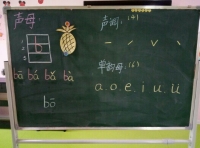 声母:
声调:(4)
b
ˉ ˊ ˇ ˋ
单韵母:(6)
bā bá bǎ bà
a o e i u ü
bō